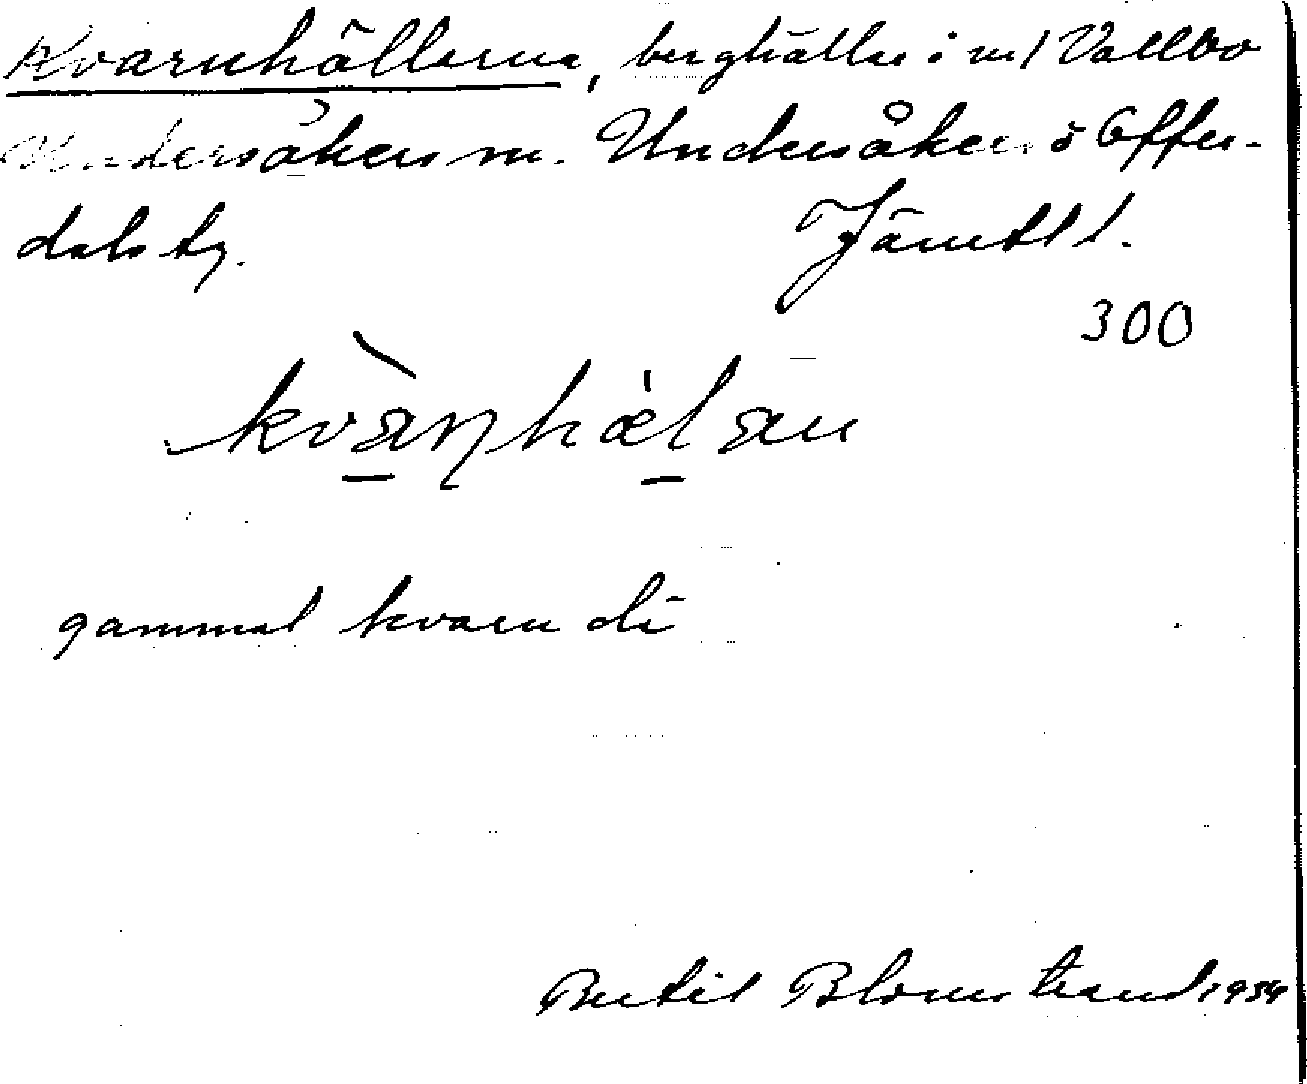 Kvarnhällerna, berghällar i ml Vallbo
Undersåkers sn. Undersåkers o Offer-
dals tg. Jämtl l.
300
kvàṉhæ̱lan
gammal kvarn di
Bertil Blomstrand 1954